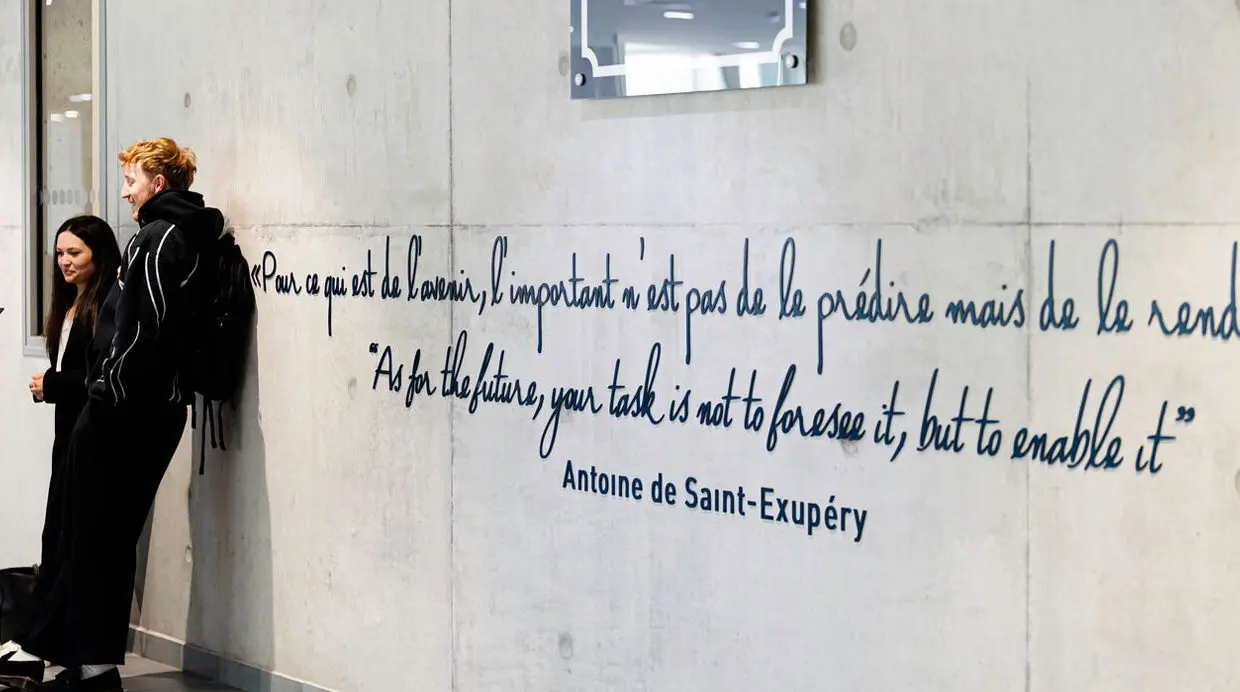 «Pour ce qui est de l'avenir, l'important n'est pas de le prédire mais de le rend
“As for the future, your task is not to foresee it, but to enable it”
Antoine de Saint-Exupéry